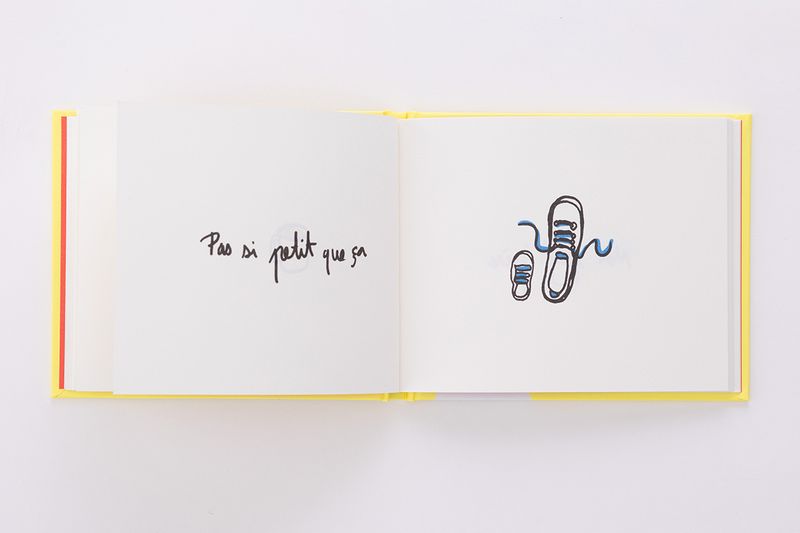 Pas si petit que ça